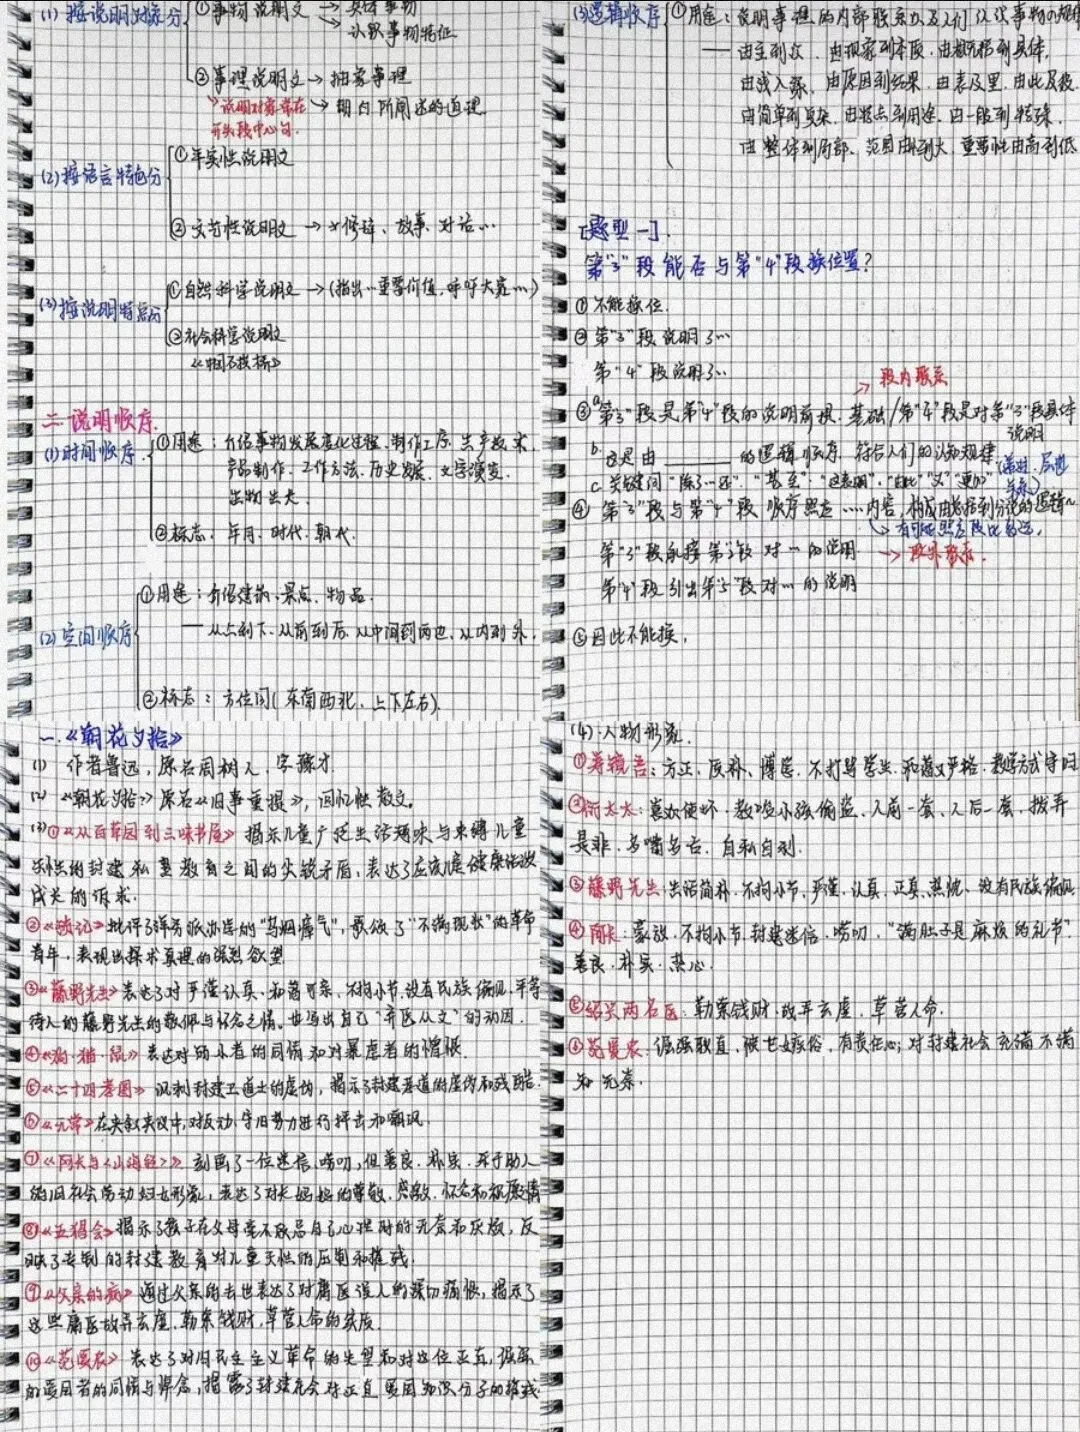 (1) 按说明对象分
①事物说明文 → 具体事物
→ 认识事物特征
②事理说明文 → 抽象事理
说明对象常在
开头段中心句.
→ 明白所阐述的道理
(2) 按语言特色分
①平实性说明文
②文艺性说明文 → 修辞、故事、对话…
(3) 按说明特点分
①自然科学说明文 → (指出…重要价值,呼吁大家…)
②社会科学说明文
《中国石拱桥》
二.说明顺序.
(1) 时间顺序.
①用途:介绍事物发展变化过程.制作工序.生产技术.
产品制作.工作方法.历史发展.文字演变.
生物生长.
②标志:年月.时代.朝代.
(2) 空间顺序
①用途:介绍建筑、景点.物品.
——从上到下.从前到后.从中间到两边.从内到外.
②标志:方位词(东南西北.上下左右).
(3)逻辑顺序
①用途:说明事理的内部联系以及人们认识事物的规律
——由主到次.由现象到本质.由概括到具体.
由浅入深.由原因到结果.由表及里.由此及彼.
由简单到复杂.由特点到用途.由一般到特殊.
由整体到局部.范围由小到大.重要性由高到低
[题型一].
第“3”段能否与第“4”段换位置?
①不能换位.
②第“3”段说明了…
第“4”段说明了…
→ 段内联系
③a第“3”段是第“4”段的说明前提、基础/第“4”段是对第“3”段具体
说明
b.这是由______的逻辑顺序,符合人们的认知规律
c.关键词“除了…还”.“甚至”.“这表明”.“由此”“又”“更加”
④ 第“3”段与第“4”段顺序照应……内容,构成由总括到分说的逻辑~
第“3”段承接第“2”段对…的说明
→ 段外联系.
第“4”段引出第“5”段对…的说明
⑤因此不能换.
一.《朝花夕拾》
(1) 作者鲁迅,原名周树人,字豫才.
(2) 《朝花夕拾》原名《旧事重提》,回忆性散文.
(3)①《从百草园到三味书屋》揭示儿童广泛生活趣味与束缚儿童
天性的封建私塾教育之间的尖锐矛盾,表达了应该让健康活泼
成长的诉求.
②《琐记》批评了洋务派办学的“乌烟瘴气”,歌颂了“不满现状”的革命
青年,表现出探求真理的强烈欲望
③《藤野先生》表达了对严谨认真.和蔼可亲.不拘小节.没有民族偏见.平等
待人的藤野先生的敬佩与怀念之情。也写出自己“弃医从文”的动因.
④《狗·猫·鼠》表达对弱小者的同情和对暴虐者的憎恨.
⑤《二十四孝图》讽刺封建卫道士的虚伪,揭示了封建孝道的虚伪和残酷.
⑥《无常》在夹叙夹议中,对反动.守旧势力进行抨击和嘲讽.
⑦《阿长与《山海经》》刻画了一位迷信.唠叨,但善良.朴实.乐于助人
的旧社会劳动妇女形象,表达了对长妈妈的尊敬.感激.怀念和祝愿情
⑧《五猖会》揭示了孩子在父母毫不顾忌自己心理时的无奈和厌烦,反
映了专制的封建教育对儿童天性的压制和摧残.
⑨《父亲的病》通过父亲的去世表达了对庸医误人的深切痛恨,揭示了
这些庸医故弄玄虚.勒索钱财,草菅人命的实质.
⑩《范爱农》表达了对旧民主主义革命的失望和对这位正直.倔强
的爱国者的同情与悼念,揭露了封建社会对正直爱国知识分子的摧残.
(4).人物形象.
①寿镜吾:方正、质朴、博学、不打骂学生.和蔼又严格.教学方式守旧
②衍太太:喜欢使坏.教唆小孩偷盗.人前一套,人后一套.搬弄
是非.多嘴多舌.自私自利.
③藤野先生:生活简朴.不拘小节.严谨.认真.正直.热忱.没有民族偏见
④阿长:豪放.不拘小节.封建迷信.唠叨,“满肚子是麻烦的礼节”.
善良.朴实.热心.
⑤绍兴两名医:勒索钱财.故弄玄虚.草菅人命.
⑥范爱农:倔强耿直,愤世嫉俗,有责任心;对封建社会充满不满
和无奈.